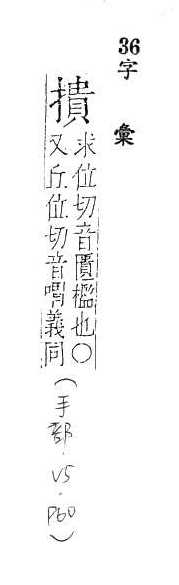 36字 彙
撌
求位切音匱也○
又丘位切音喟義同
(手部.V5.P60)